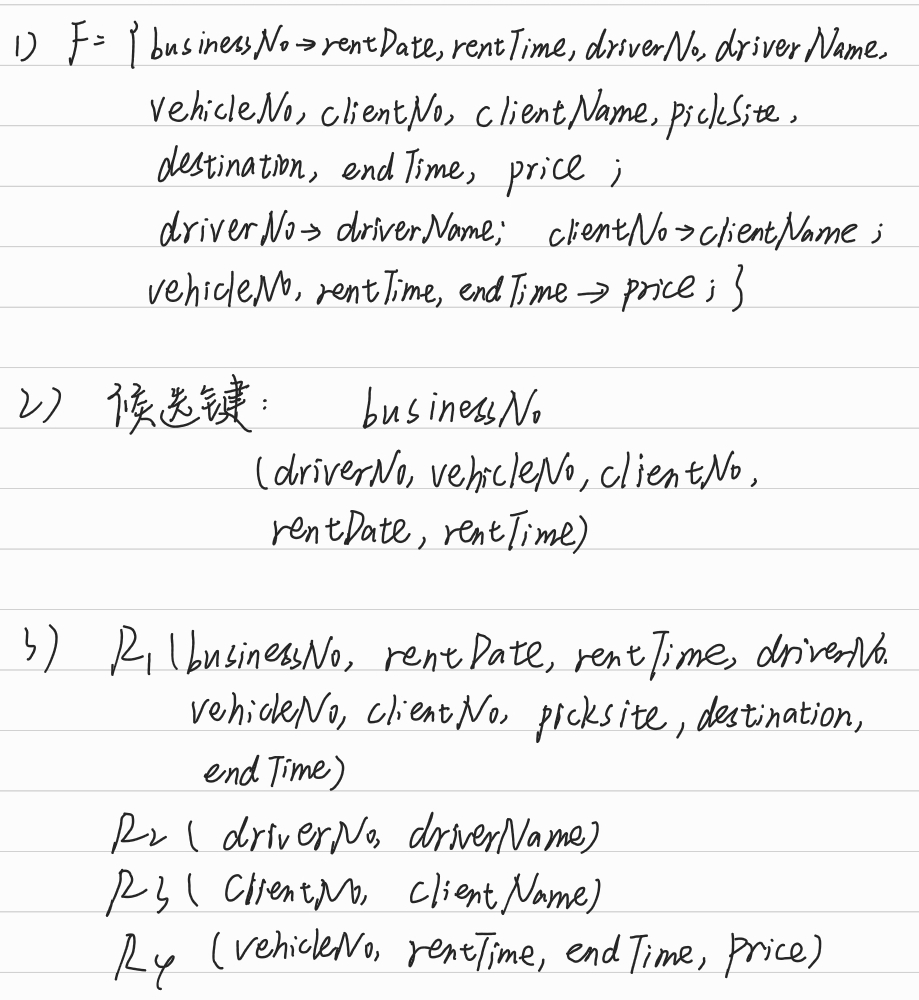 1) F = { businessNo → rentDate, rentTime, driverNo, driverName,
vehicleNo, clientNo, clientName, pickSite,
destination, endTime, price ;
driverNo → driverName; clientNo → clientName ;
vehicleNo, rentTime, endTime → price ; }
2) 候选键: businessNo
(driverNo, vehicleNo, clientNo,
rentDate, rentTime)
3) R1 (businessNo, rentDate, rentTime, driverNo.
vehicleNo, clientNo, picksite, destination,
endTime)
R2 ( driverNo, driverName)
R3 ( ClientNo, clientName)
R4 (vehicleNo, rentTime, endTime, price)